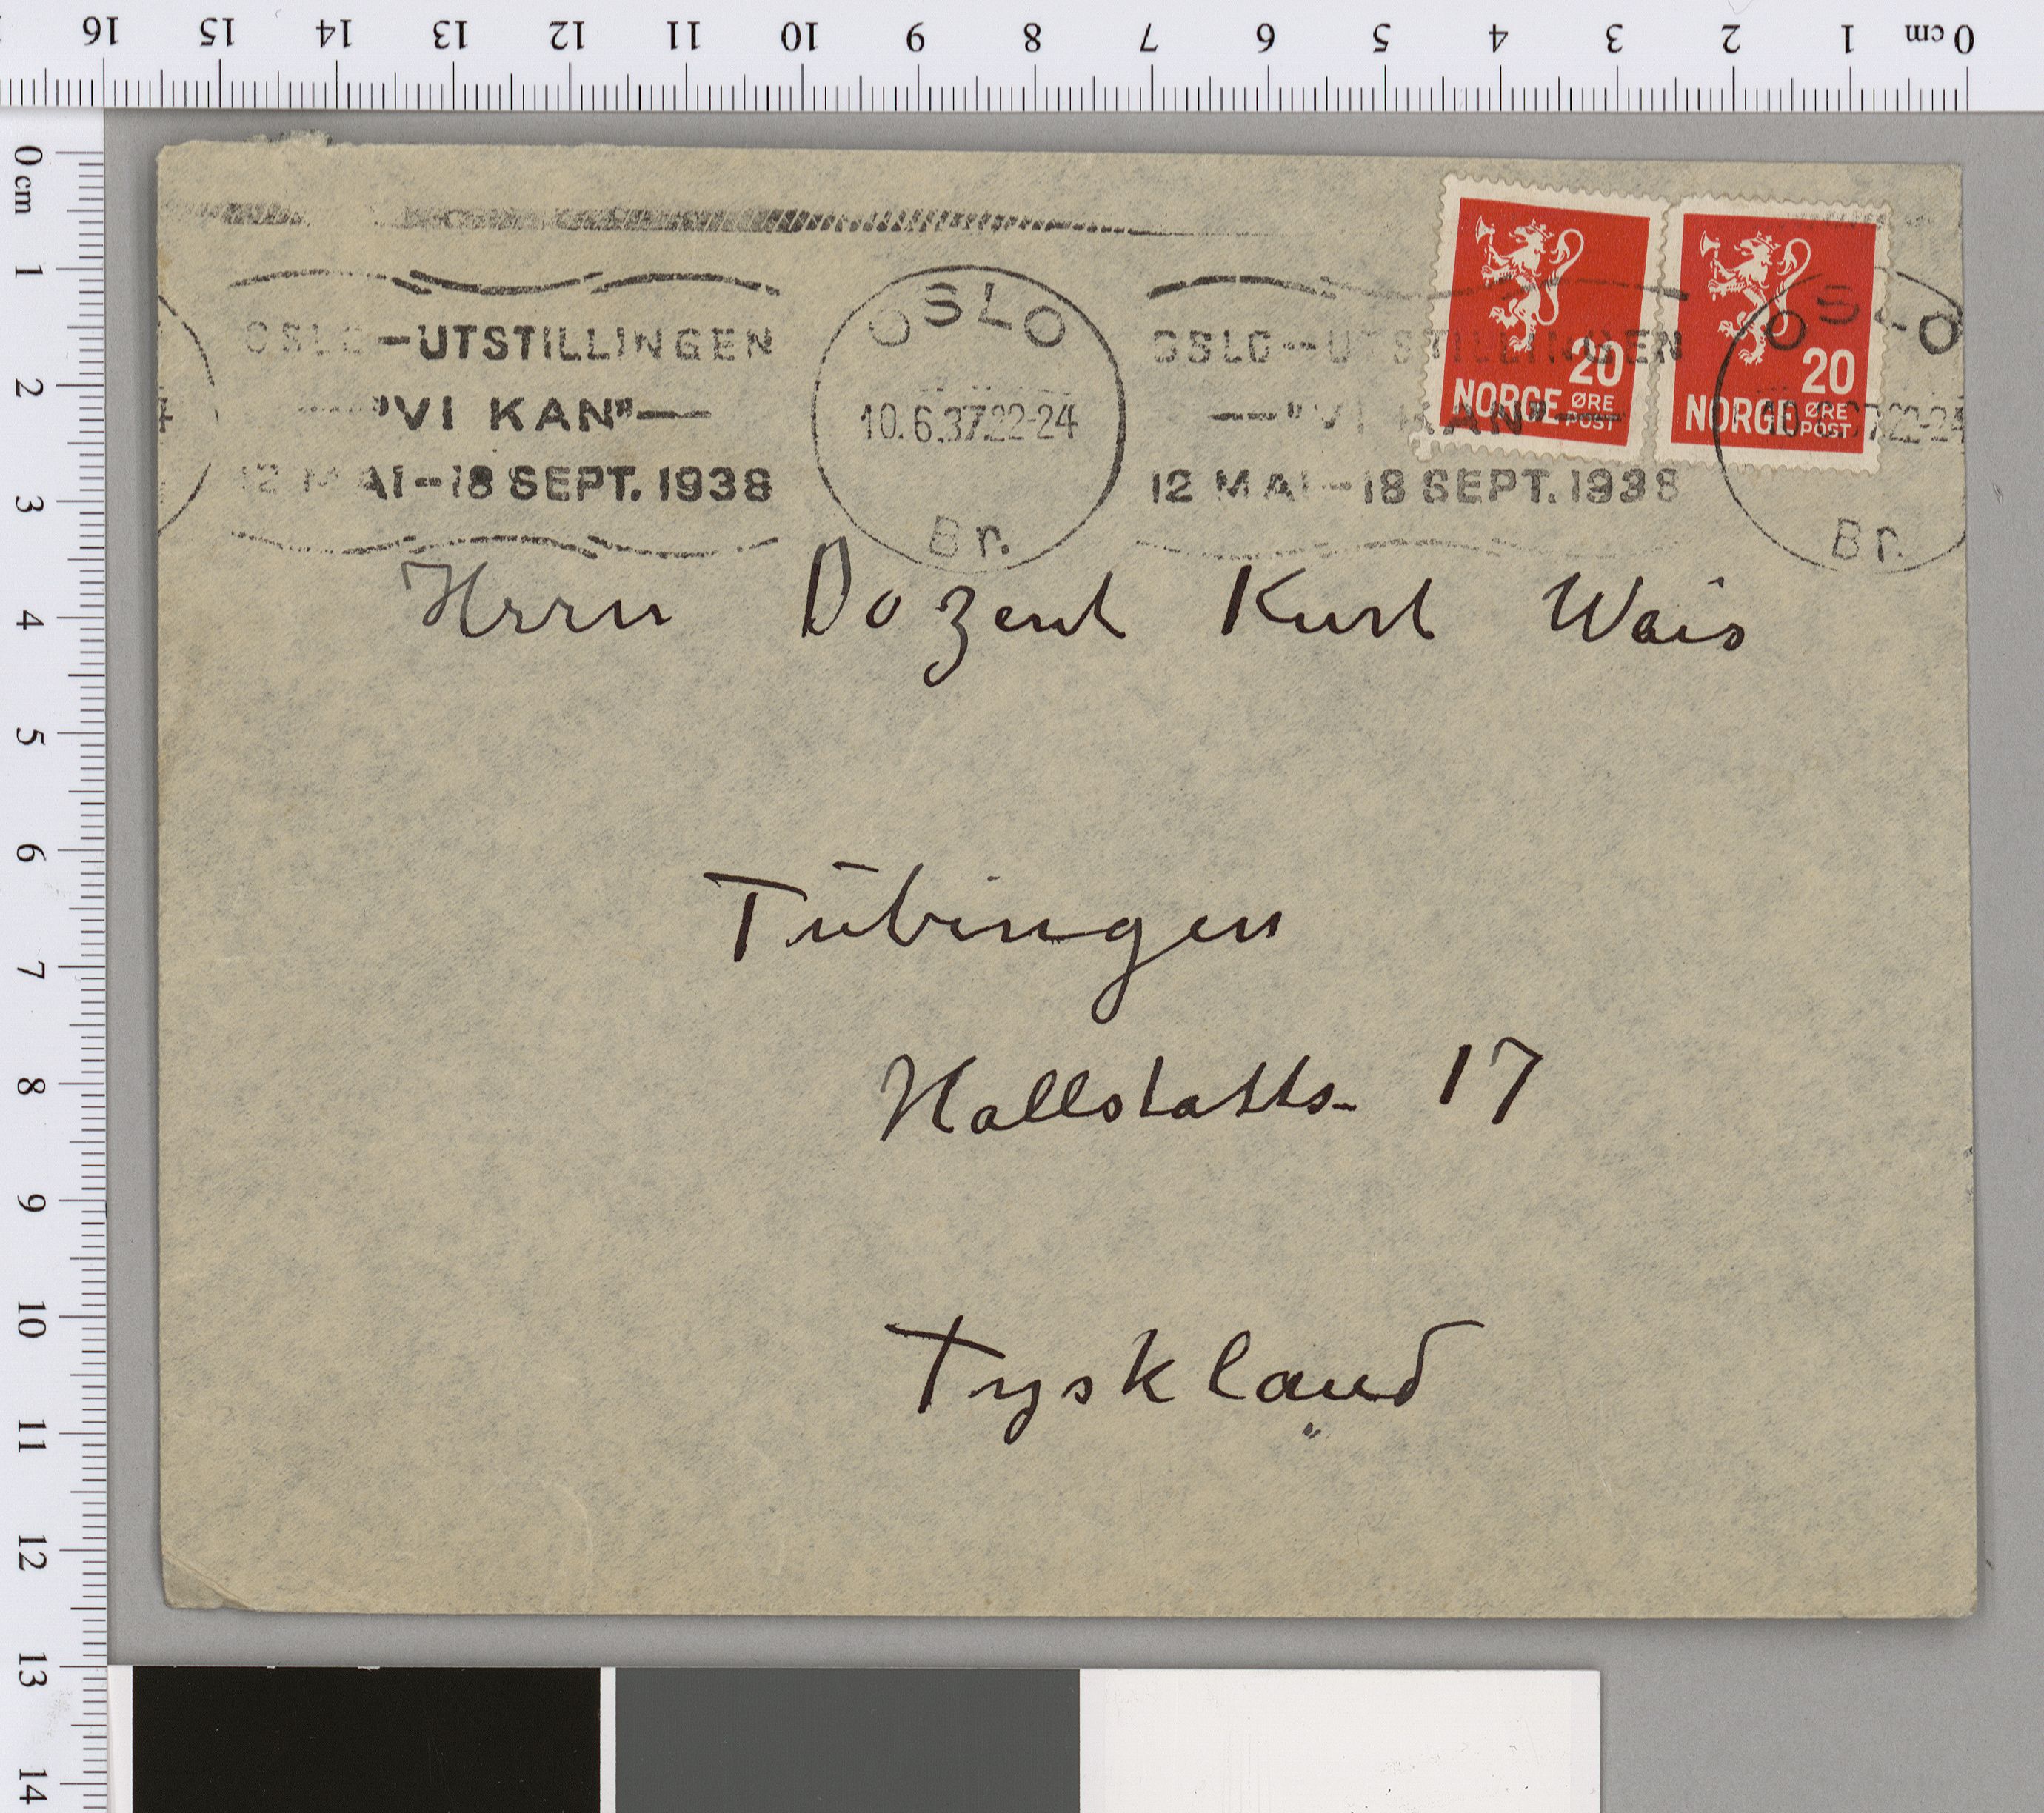 16 15 14 13 12 11 10 9 8 7 6 5 4 3 2 1 0 cm
0 cm 1 2 3 4 5 6 7 8 9 10 11 12 13 14
OSLO-UTSTILLINGEN
"VI KAN"
12 MAI-18 SEPT. 1938
OSLO
10.6.37.22-24
Br.
OSLO-UTSTILLINGEN
"VI KAN"
12 MAI-18 SEPT. 1938
20
NORGE ØRE
POST
20
NORGE ØRE
POST
OSLO
22-24
Br.
Herrn Dozent Kurt Wais
Tübingen
Hallstatts- 17
Tyskland